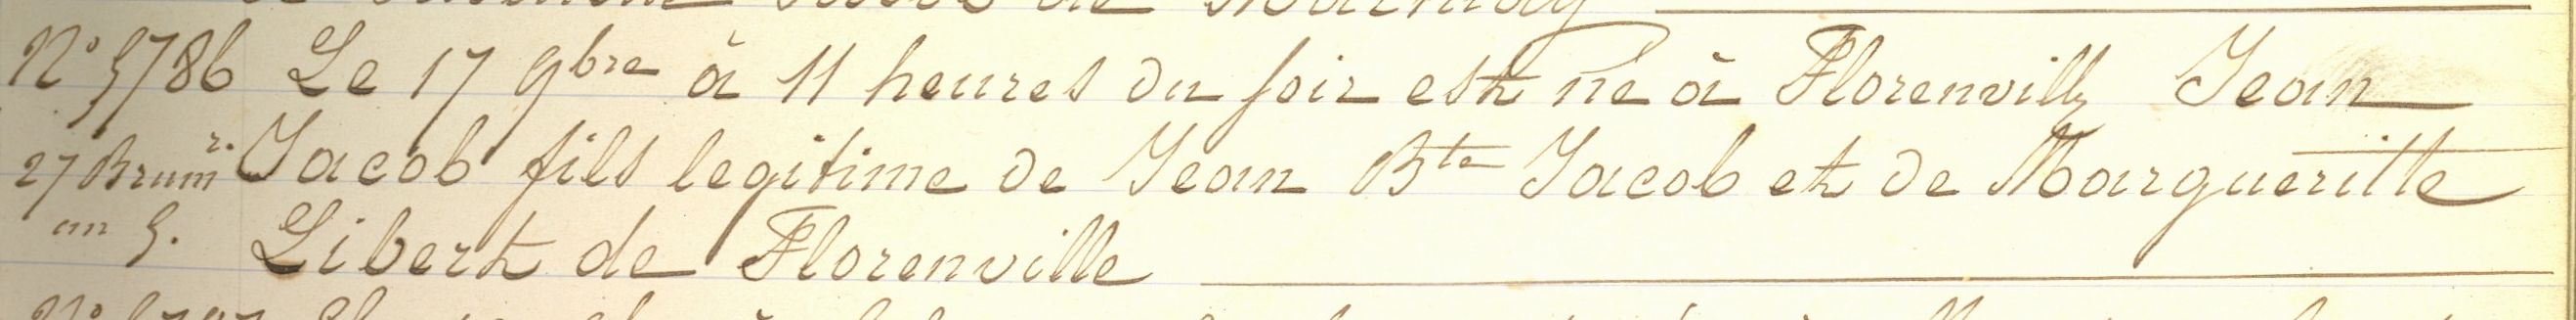 N° 5786 Le 17 9bre à 11 heures du soir est né à Florenville Jean
27 Brumr. Jacob fils legitime de Jean Bte Jacob et de Margueritte
an 5. Libert de Florenville